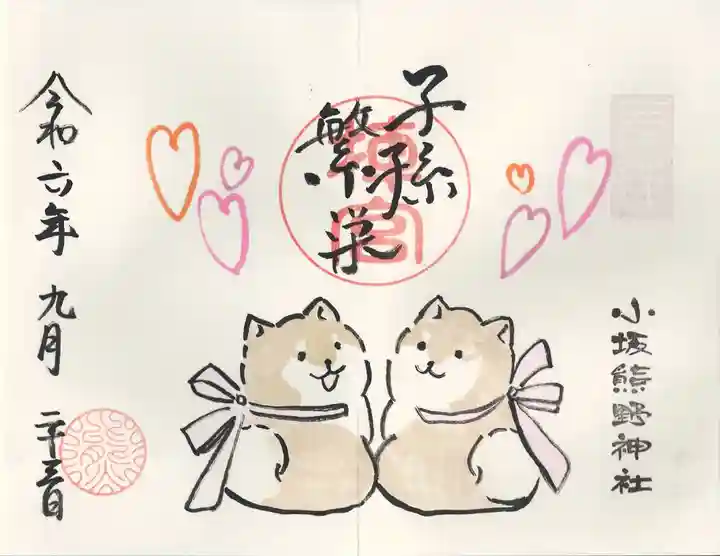 小坂熊野神社
子孫
繁栄
令和六年 九月 二十三日